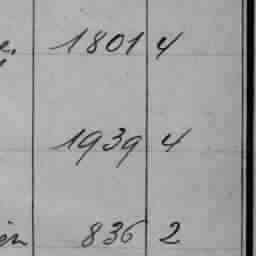 1801 4
1939 4
836 2